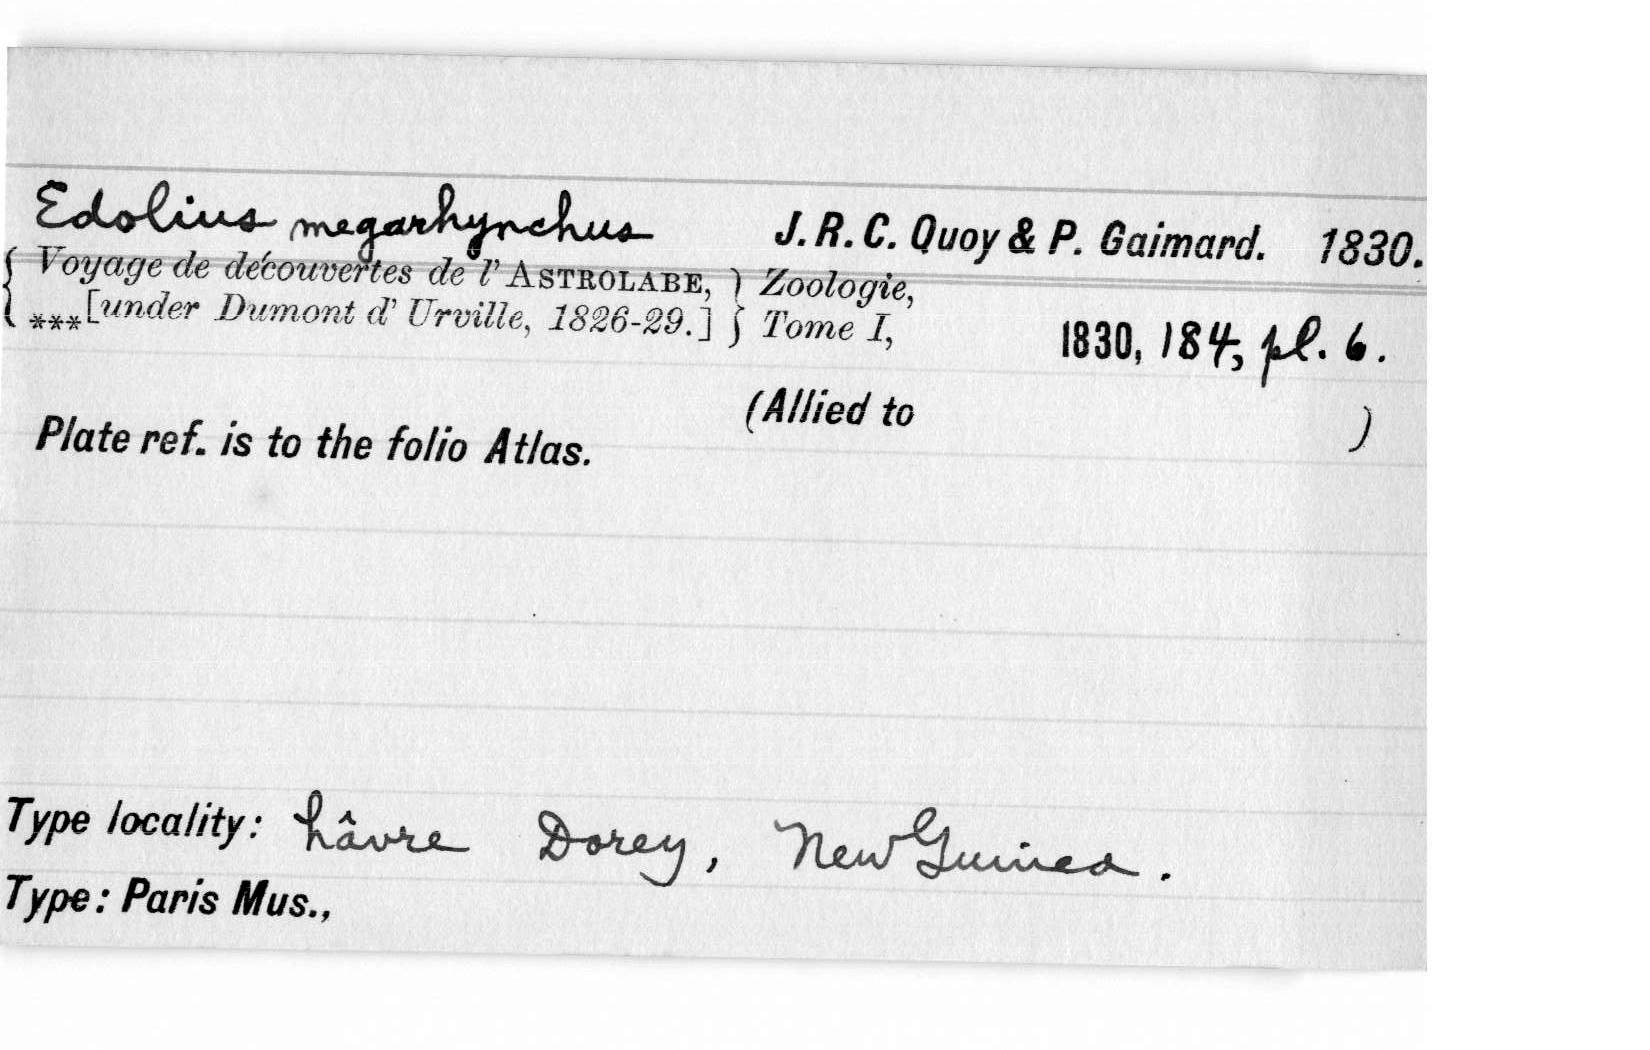 Edolius megarhynchus J. R. C. Quoy & P. Gaimard. 1830.
{ Voyage de découvertes de l' ASTROLABE, } Zoologie,
{ ***[under Dumont d' Urville, 1826-29.] } Tome I, 1830, 184, pl. 6.
(Allied to )
Plate ref. is to the folio Atlas.
Type locality: hâvre Dorey, New Guinea.
Type: Paris Mus.,